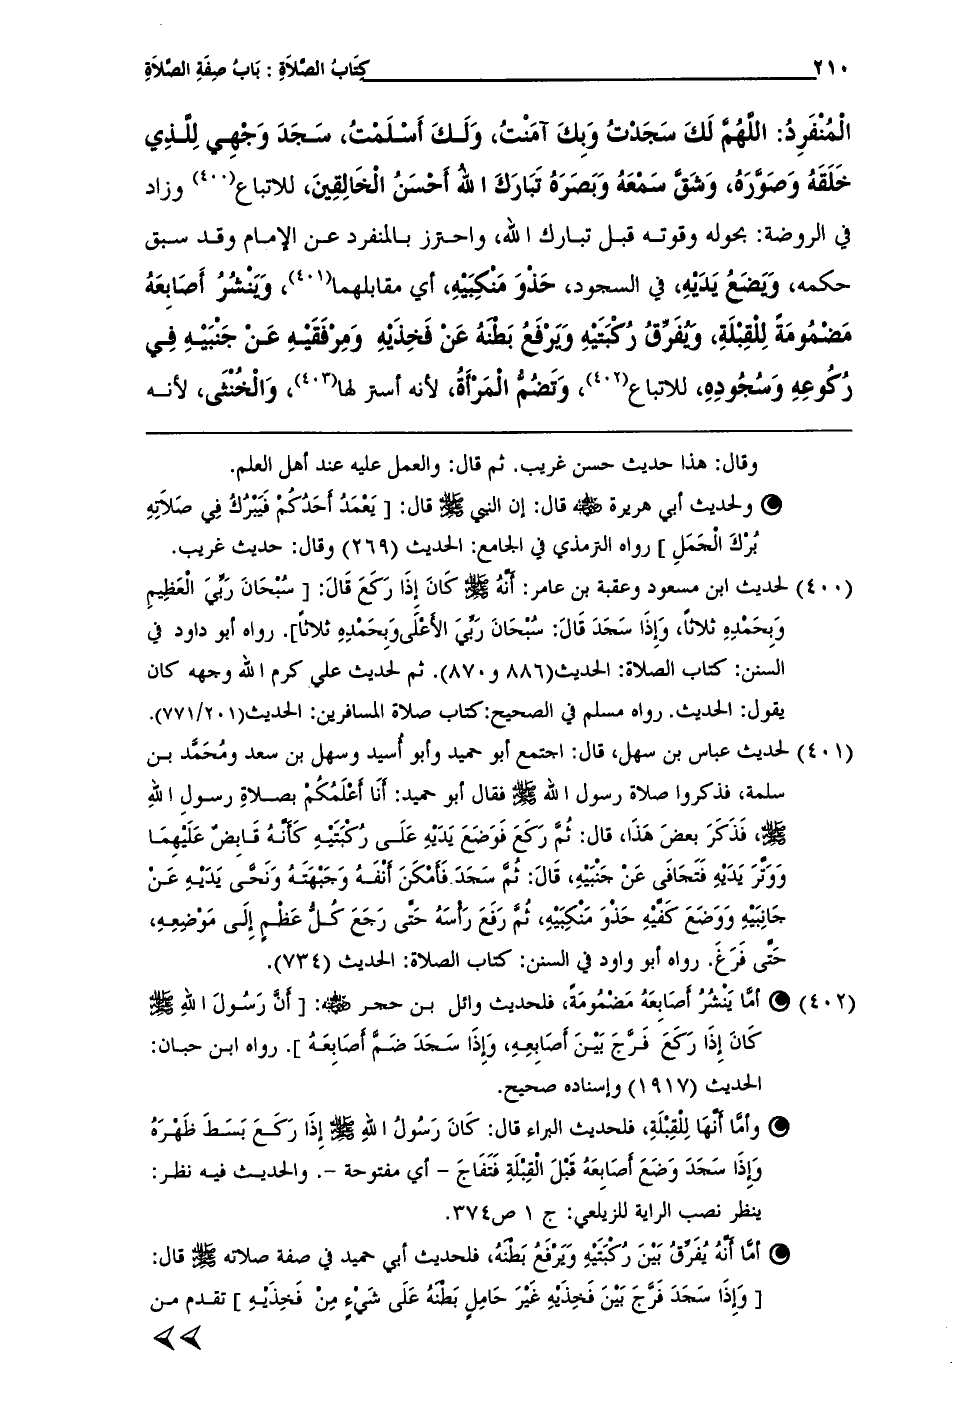 ٢١٠ كِتَابُ الصَّلاَةِ : بَابُ صِفَةِ الصَّلاَةِ
الْمُنْفَرِدُ: اللَّهُمَّ لَكَ سَجَدْتُ وَبِكَ آمَنْتُ، وَلَـكَ أَسْـلَمْتُ، سَـجَدَ وَجْهِـي لِلَّـذِي
خَلَقَهُ وَصَوَّرَهُ، وَشَقَّ سَمْعَهُ وَبَصَرَهُ تَبَارَكَ اللهُ أَحْسَنُ الْخَالِقِينَ، للاتباع(٤٠٠) وزاد
في الروضة: بحوله وقوتـه قبـل تبـارك الله، واحترز بـالمنفرد عـن الإمـام وقـد سـبق
حكمه، وَيَضَعُ يَدَيْهِ، في السجود، حَذْوَ مَنْكِبَيْهِ، أي مقابلهما(٤٠١)، وَيَنْشُرُ أَصَابِعَهُ
مَضْمُومَةً لِلْقِبْلَةِ، وَيُفَرِّقُ رُكْبَتَيْهِ وَيَرْفَعُ بَطْنَهُ عَنْ فَخِذَيْهِ وَمِرْفَقَيْـهِ عَـنْ جَنْبَيْـهِ فِـي
رُكُوعِهِ وَسُجُودِهِ، للاتباع(٤٠٢)، وَتَضُمُّ الْمَرْأَةُ، لأنه أستر لها(٤٠٣)، وَالْخُنْثَى، لأنــه
وقال: هذا حديث حسن غريب. ثم قال: والعمل عليه عند أهل العلم.
ولحديث أبي هريرة ﷺ قال: إن النبي ﷺ قال: [ يَعْمَدُ أَحَدُكُمْ فَيَبْرُكُ فِي صَلاَتِهِ
بُرْكَ الْجَمَلِ ] رواه الترمذي في الجامع: الحديث (٢٦٩) وقال: حديث غريب.
(٤٠٠) لحديث ابن مسعود وعقبة بن عامر: أَنَّهُ ﷺ كَانَ إِذَا رَكَعَ قَالَ: [ سُبْحَانَ رَبِّيَ الْعَظِيمِ
وَبِحَمْدِهِ ثلاثاً، وَإِذَا سَجَدَ قَالَ: سُبْحَانَ رَبِّيَ الأَعْلَى وَبِحَمْدِهِ ثلاثاً]. رواه أبو داود في
السنن: كتاب الصلاة: الحديث(٨٨٦ و٨٧٠). ثم لحديث علي كرم الله وجهه كان
يقول: الحديث. رواه مسلم في الصحيح:كتاب صلاة المسافرين: الحديث(٧٧١/٢٠١).
(٤٠١) لحديث عباس بن سهل، قال: اجتمع أبو حميد وأبو أُسيد وسهل بن سعد ومُحَمَّد بـن
سلمة، فذكروا صلاة رسول الله ﷺ فقال أبو حميد: أَنَا أَعْلَمُكُمْ بِصَـلاةِ رسـولِ اللهِ
ﷺ، فَذَكَرَ بعضَ هَذَا، قال: ثُمَّ رَكَعَ فَوَضَعَ يَدَيْهِ عَلَـى رُكْبَتَيْـهِ كَأَنَّـهُ قَـابِضٌ عَلَيْهِمَـا
وَوَتَّرَ يَدَيْهِ فَتَجَافَى عَنْ جَنْبَيْهِ، قَالَ: ثُمَّ سَجَدَ فَأَمْكَنَ أَنْفَـهُ وَجَبْهَتَـهُ وَنَحَّـى يَدَيْـهِ عَـنْ
جَانِبَيْهِ وَوَضَعَ كَفَّيْهِ حَذْوَ مَنْكِبَيْهِ، ثُمَّ رَفَعَ رَأْسَهُ حَتَّى رَجَعَ كُـلُّ عَظْـمٍ إِلَى مَوْضِعِـهِ،
حَتَّى فَرَغَ. رواه أبو واود في السنن: كتاب الصلاة: الحديث (٧٣٤).
(٤٠٢) أمَّا يَنْشُرُ أَصَابِعَهُ مَضْمُومَةً، فلحديث وائل بـن حجر ﷺ: [ أَنَّ رَسُـولَ اللهِ ﷺ
كَانَ إِذَا رَكَعَ فَـرَّجَ بَيْـنَ أَصَابِعِـهِ، وَإِذَا سَـجَدَ ضَـمَّ أَصَابِعَـهُ ]. رواه ابـن حبـان:
الحديث (١٩١٧) وإسناده صحيح.
وأمَّا أَنَّهَا لِلْقِبْلَةِ، فلحديث البراء قال: كَانَ رَسُولُ اللهِ ﷺ إِذَا رَكَـعَ بَسَـطَ ظَهْـرَهُ
وَإِذَا سَجَدَ وَضَعَ أَصَابِعَهُ قَبْلَ الْقِبْلَةِ فَتَفَاجَ - أي مفتوحة -. والحديـث فيـه نظـر:
ينظر نصب الراية للزيلعي: ج ١ ص٣٧٤.
أمَّا أَنَّهُ يُفَرِّقُ بَيْنَ رُكْبَتَيْهِ وَيَرْفَعُ بَطْنَهُ، فلحديث أبي حميد في صفة صلاته ﷺ قال:
[ وَإِذَا سَجَدَ فَرَّجَ بَيْنَ فَخِذَيْهِ غَيْرَ حَامِلٍ بَطْنَهُ عَلَى شَيْءٍ مِنْ فَخِذَيْـهِ ] تقـدم مـن